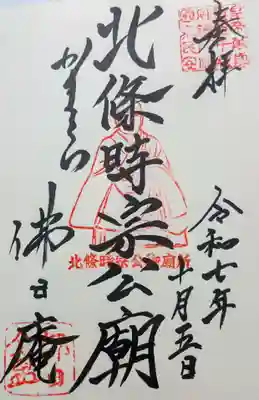 奉拝
令和七年
十月五日
北條時宗公廟
北條時宗公御廟所
かまくら
佛日
庵